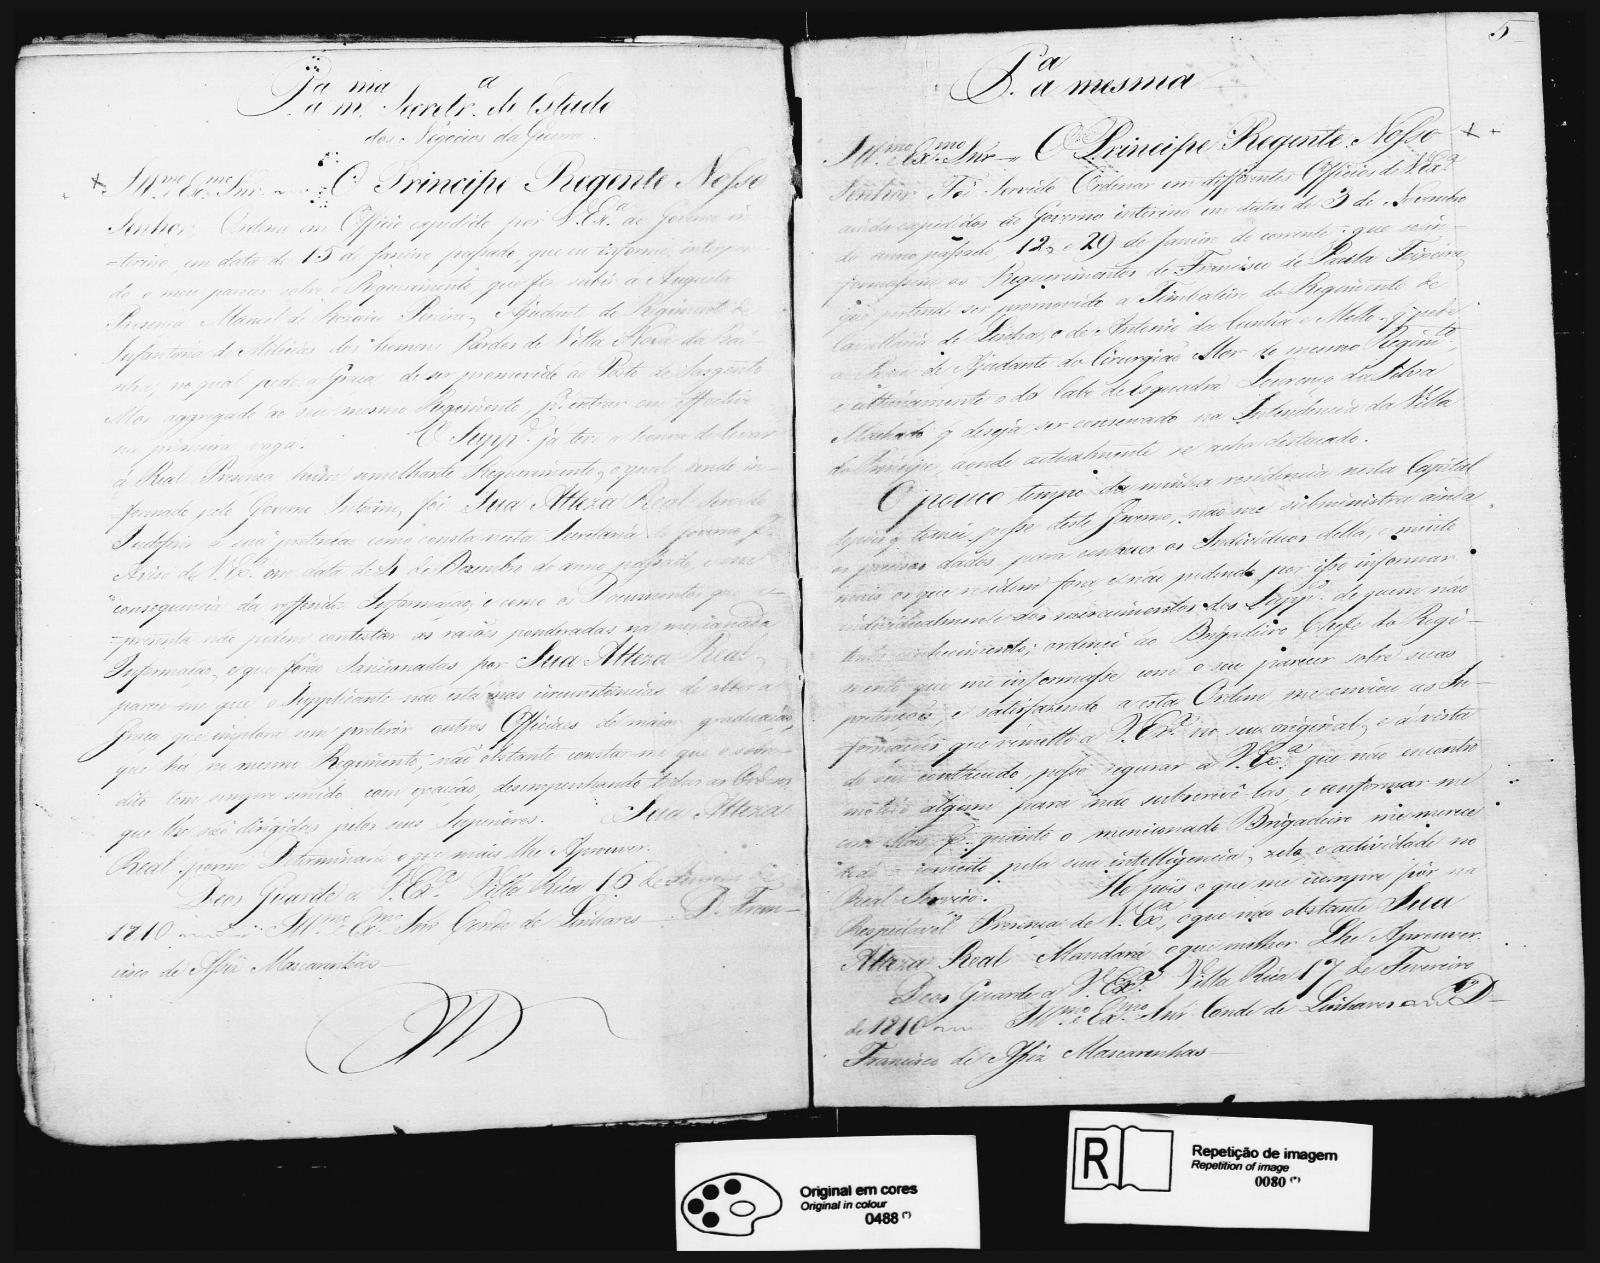 P.a a m.ma Secretr.a de Estado
dos Negocios da Guerra.
Ill.mo e Ex.mo Snr. O Principe Regente Nosso
Senhor, Ordena em Officio expedido por V. Ex.a ao Governo in-
-terino, em data de 15 de Janeiro passado, que eu informe, interpon-
do o meu parecer sobre o Requerimento que fez subir a Augusta
Presença Manoel do Rozario Pereira, Ajudante do Regimento de
Infantaria de Milicias dos homens Pardos de Villa Nova da Rai-
nha, no qual pede a Graça de ser promovido ao Posto de Sargento
Mor aggregado ao seu mesmo Regimento, p.a entrar em effectivo
na primeira vaga. O Supp.e já teve a honra de levar
á Real Presença hum semelhante Requerimento, o qual sendo in-
formado pelo Governo Interino, foi Sua Alteza Real Servido
Indeferir a sua pretenção como consta nesta Secretaria do Governo p.r
Aviso de V. Ex.a em data de 4 de Dezembro do anno passado, e em
consequencia da referida Informação; e como os Documentos que a-
-prezenta não podem contestar as razões ponderadas na mencionada
Informação, e que forão Sancionadas por Sua Alteza Real,
parece-me que o Supplicante não está nas circunstancias de obter a
Graça que implora sem preterir outros Officiaes de maior graduação,
que ha no mesmo Regimento; não obstante constar-me que o sobre-
dito tem sempre servido com exacção, desempenhando todas as Ordens
que lhe são dirigidas pelos seus Superiores. Sua Alteza
Real porem Determinará o que mais lhe Aprouver.
Deos Guarde a V. Ex.a Villa Rica 16 de
1810 Ill.mo e Ex.mo Snr Conde de Linhares D. Fran-
cisco de Assiz Mascarenhas
5
P.a a mesma
Ill.mo e Ex.mo Snr O Principe Regente Nosso
Senhor Foi Servido Ordenar em differentes Officios de V. Ex.a
ainda expedidos ao Governo interino em datas de 3 de Novembro
do anno passado, 12, e 29 de Janeiro do corrente, que se in-
formassem os Requerimentos de Francisco de Paula Teixeira,
que pertende ser promovido a Timbaleiro do Regimento de
Cavallaria de Linha, o de Antonio da Cunha e Mello q' pede
a Praça de Ajudante do Cirurgião Mor do mesmo Regim.to,
e ultimamente o do Cabo de Esquadra Lourenço da Silva
Machado q' deseja ser conservado na Intendencia da Villa
do Principe, aonde actualmente se acha destacado.
O pouco tempo da minha residencia nesta Capital
depois q' tomei posse deste Governo, não me subministra ainda
os precisos dados para conhecer os Individuos della, e muito
mais os que residem fora, e não podendo por isso informar
individualmente dos merecimentos dos Supp.es de quem não
tenho conhecimento; ordenei ao Brigadeiro Chefe do Regi-
mento que me informasse com o seu parecer sobre suas
pertenções, e satisfazendo a esta Ordem me enviou as In-
formações que remetto a V. Ex.a no seu original, e á vista
do seu contheudo, posso segurar a V. Ex.a que não encontro
motivo algum para não subscrevê-las, e conformar me
com ellas, p.r quanto o mencionado Brigadeiro me merece
todo o conceito pela sua intelligencia, zelo, e actividade no
Real Serviço. He pois o que me cumpre pôr na
Respeitavel Presença de V. Ex.a, o que não obstante Sua
Alteza Real Mandará o que melhor Lhe Aprouver.
Deos Guarde a V. Ex.a Villa Rica 17 de Fevereiro
de 1810 Ill.mo e Ex.mo Snr Conde de Linhares D.
Francisco de Assiz Mascarenhas
Original em cores
Original in colour
0488 (*)
R
Repetição de imagem
Repetition of image
0080 (*)